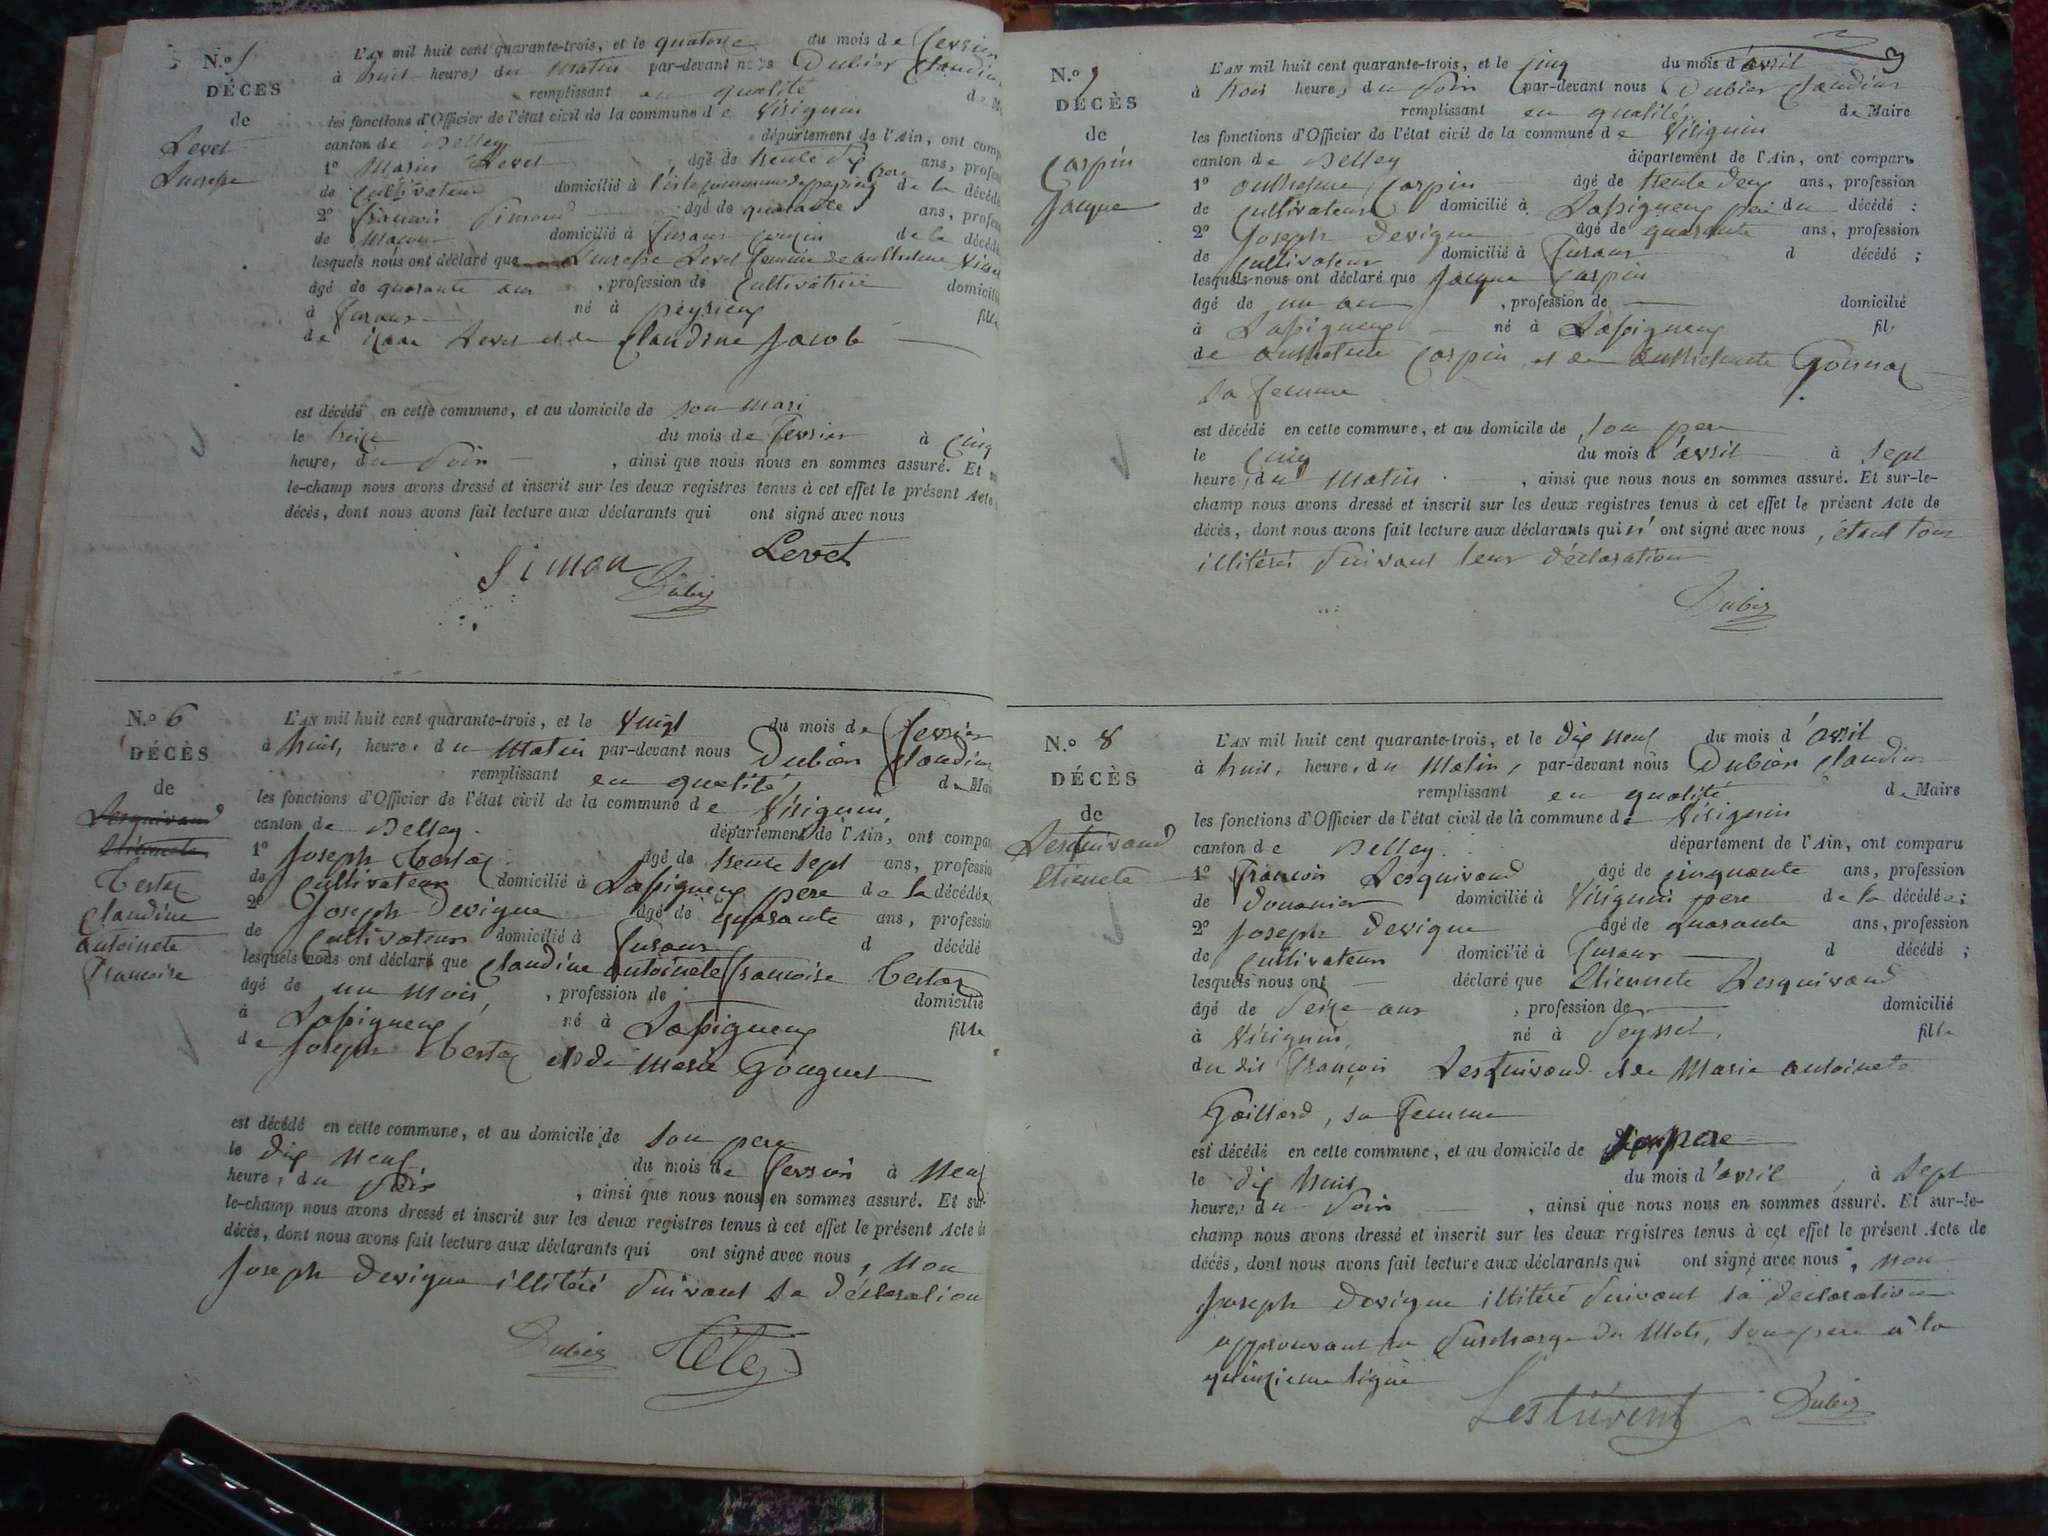 N.o 5
DÉCÈS
de
Levet
L'AN mil huit cent quarante-trois, et le quatorze du mois de fevrier
à huit heures du matin par-devant nous Dubier Claudius
remplissant en qualité de
les fonctions d'Officier de l'état civil de la commune de Virignin
canton de Belley département de l'Ain, ont
1º Levet âgé de trente ans,
de cultivateur domicilié à de la
2º françois âgé de quarante ans,
de domicilié à de la
lesquels nous ont déclaré que Levet femme de anthelme
âgé de quarante ans , profession de cultivatrice
à né à peyrieu fille
de Levet et de Claudine Jacob
est décédé en cette commune, et au domicile de son mari
le treize du mois de fevrier à cinq
heure, du soir , ainsi que nous nous en sommes assuré. Et
le-champ nous avons dressé et inscrit sur les deux registres tenus à cet effet le présent Acte
décès, dont nous avons fait lecture aux déclarants qui ont signé avec nous
Simon Levet
Dubier
N.o 6
DÉCÈS
de
Lesquivand
Etienete
Testaz
Claudine
antoinete
francoise
L'AN mil huit cent quarante-trois, et le vingt du mois de fevrier
à huit, heure, du matin par-devant nous Dubier Claudius
remplissant en qualité,
les fonctions d'Officier de l'état civil de la commune de Virignin,
canton de Belley. département de l'Ain, ont
1º Joseph Testaz âgé de trente sept ans,
de cultivateur domicilié à Lassigneux pere de la décédée
2º Joseph Devigne âgé de quarante ans,
de cultivateur domicilié à d décédé
lesquels nous ont déclaré que Claudine antoinete francoise Testaz
âgé de un mois, , profession de domicilié
à Lassigneux, né à Lassigneux fille
de Joseph Testaz et de Marie Gouguet
est décédé en cette commune, et au domicile de son pere
le dix neuf du mois de fevrier à neuf
heure, du soir , ainsi que nous nous en sommes assuré. Et sur
le-champ nous avons dressé et inscrit sur les deux registres tenus à cet effet le présent Acte de
décès, dont nous avons fait lecture aux déclarants qui ont signé avec nous, non
Joseph Devigne illitéré suivant sa déclaration
Dubier
3
N.o 7
DÉCÈS
de
Carpin
Jacque
L'AN mil huit cent quarante-trois, et le cinq du mois d'avril
à trois heures du soir par-devant nous Dubier Claudius
remplissant en qualité, de Maire
les fonctions d'Officier de l'état civil de la commune de Virignin
canton de Belley département de l'Ain, ont comparu
1º anthelme Carpin âgé de trente deux ans, profession
de cultivateur domicilié à Lassigneux pere du décédé :
2º Joseph Devigne âgé de quarante ans, profession
de cultivateur domicilié à d décédé ;
lesquels nous ont déclaré que Jacque Carpin
âgé de un an , profession de domicilié
à Lassigneux né à Lassigneux fils
de anthelme Carpin et de anthelmete
sa femme
est décédé en cette commune, et au domicile de son pere
le cinq du mois d'avril à sept
heure, du matin , ainsi que nous nous en sommes assuré. Et sur-le-
champ nous avons dressé et inscrit sur les deux registres tenus à cet effet le présent Acte de
décès, dont nous avons fait lecture aux déclarants qui n' ont signé avec nous, étant tous
illitérés suivant leur déclaration
Dubier
N.o 8
DÉCÈS
de
Lesquivand
Etienete
L'AN mil huit cent quarante-trois, et le dix neuf du mois d'avril
à huit, heure, du matin, par-devant nous Dubier Claudius
remplissant en qualité de Maire
les fonctions d'Officier de l'état civil de la commune de Virignin
canton de Belley. département de l'Ain, ont comparu
1º François Lesquivand âgé de cinquante ans, profession
de douanier domicilié à Virignin pere de la décédée ;
2º Joseph Devigne âgé de quarante ans, profession
de cultivateur domicilié à d décédé ;
lesquels nous ont déclaré que Etiennete Lesquivand
âgé de seize ans , profession de domicilié
à Virignin, né à Seyssel, fille
du dit François Lesquivand et de Marie antoinete
Gaillard, sa femme
est décédé en cette commune, et au domicile de son pere
le dix huit du mois d'avril, à sept
heure, du soir , ainsi que nous nous en sommes assuré. Et sur-le-
champ nous avons dressé et inscrit sur les deux registres tenus à cet effet le présent Acte de
décès, dont nous avons fait lecture aux déclarants qui ont signé avec nous, non
Joseph Devigne illitéré suivant sa déclaration
approuvant la surcharge du mots, son pere à la
quinzieme ligne
Dubier